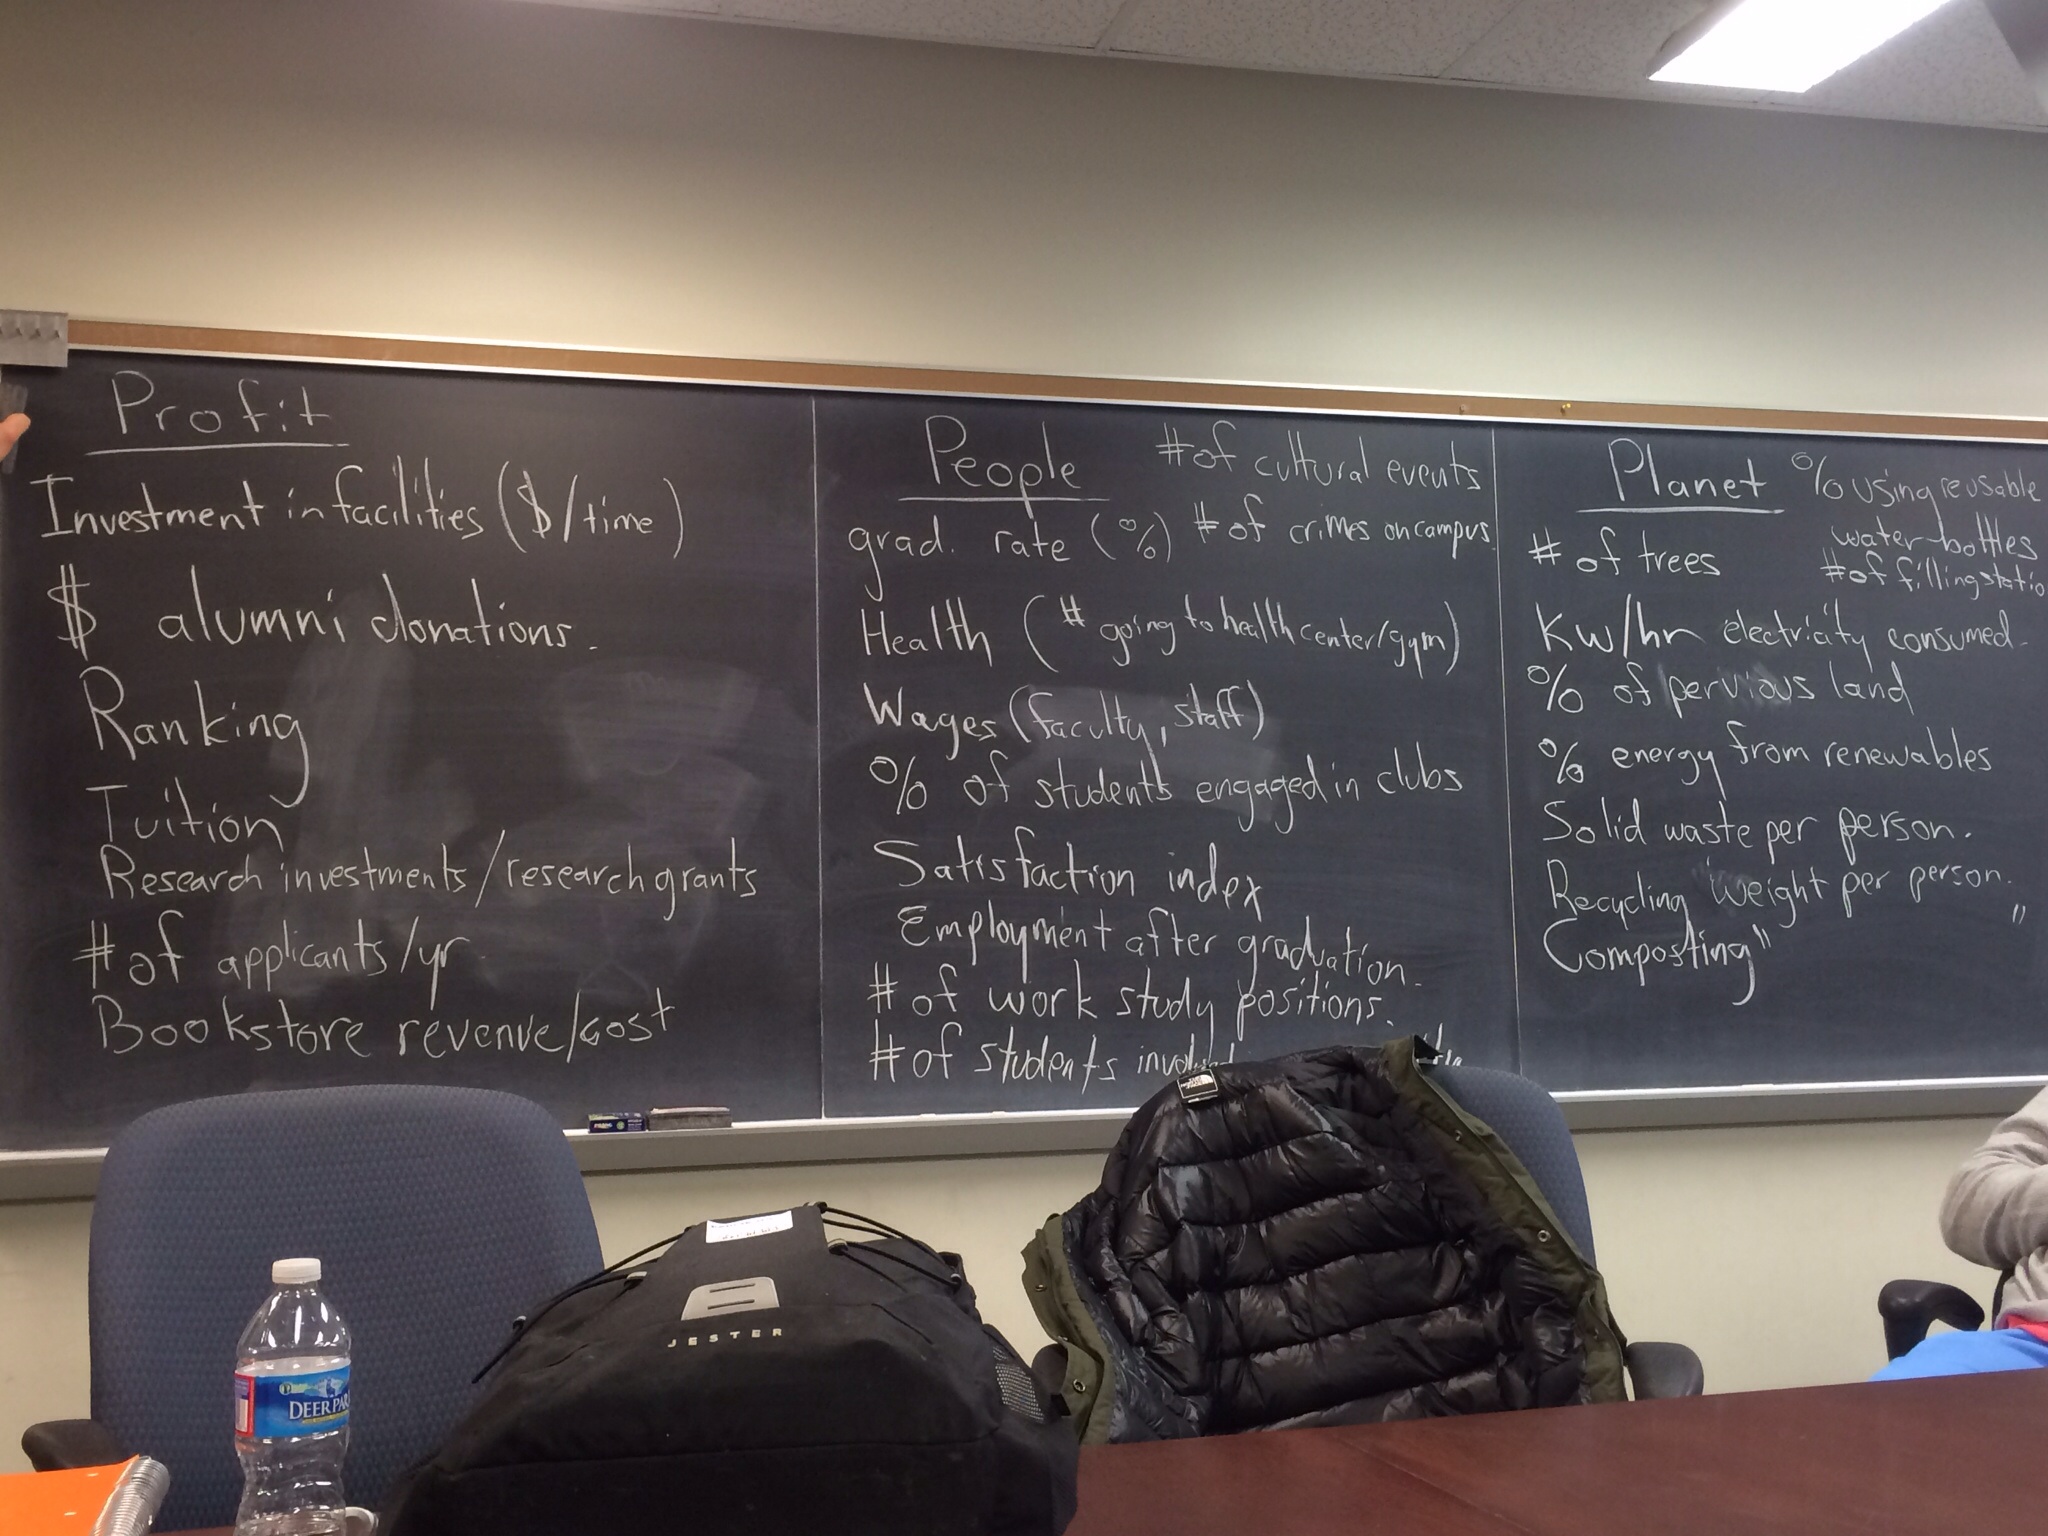 Profit
Investment in facilities ($/time)
$ alumni donations.
Ranking
Tuition
Research investments/research grants
# of applicants/yr
Bookstore revenue/cost
People
# of cultural events
grad. rate (%)
# of crimes on campus
Health (# going to health center/gym)
Wages (faculty, staff)
% of students engaged in clubs
Satisfaction index
Employment after graduation.
# of work study positions.
# of students
Planet
% using reusable
water bottles
# of filling statio
# of trees
Kw/hr electricity consumed.
% of pervious land
% energy from renewables
Solid waste per person.
Recycling weight per person.
Composting " "
JESTER
DEER PAR